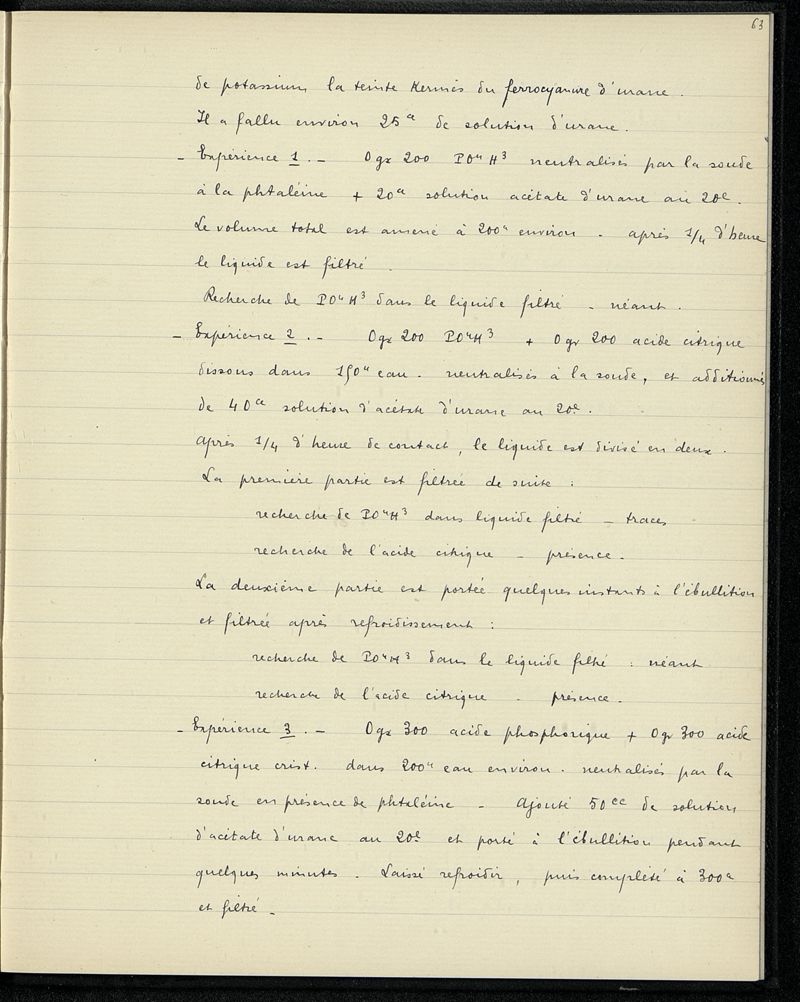 63
de potassium la teinte Kermès du ferrocyanure d'urane.
Il a fallu environ 25cc de solution d'urane.
- Expérience 1. - 0gr 200 PO4H3 neutralisés par la soude
à la phtaléine + 20cc solution acétate d'urane au 20e.
Le volume total est amené à 200cc environ - après 1/4 d'heure
le liquide est filtré.
Recherche de PO4H3 dans le liquide filtré - néant.
- Expérience 2. - 0gr 200 PO4H3 + 0gr 200 acide citrique
dissous dans 150cc eau - neutralisés à la soude, et additionnés
de 40cc solution d'acétate d'urane au 20e.
après 1/4 d'heure de contact, le liquide est divisé en deux.
La première partie est filtrée de suite :
recherche de PO4H3 dans liquide filtré - traces
recherche de l'acide citrique - présence.
La deuxième partie est portée quelques instants à l'ébullition
et filtrée après refroidissement :
recherche de PO4H3 dans le liquide filtré : néant
recherche de l'acide citrique - présence.
- Expérience 3. - 0gr 300 acide phosphorique + 0gr 300 acide
citrique crist. dans 200cc eau environ - neutralisés par la
soude en présence de phtaléine - Ajouté 50cc de solution
d'acétate d'urane au 20e et porté à l'ébullition pendant
quelques minutes. Laissé refroidir, puis complété à 300cc
et filtré -